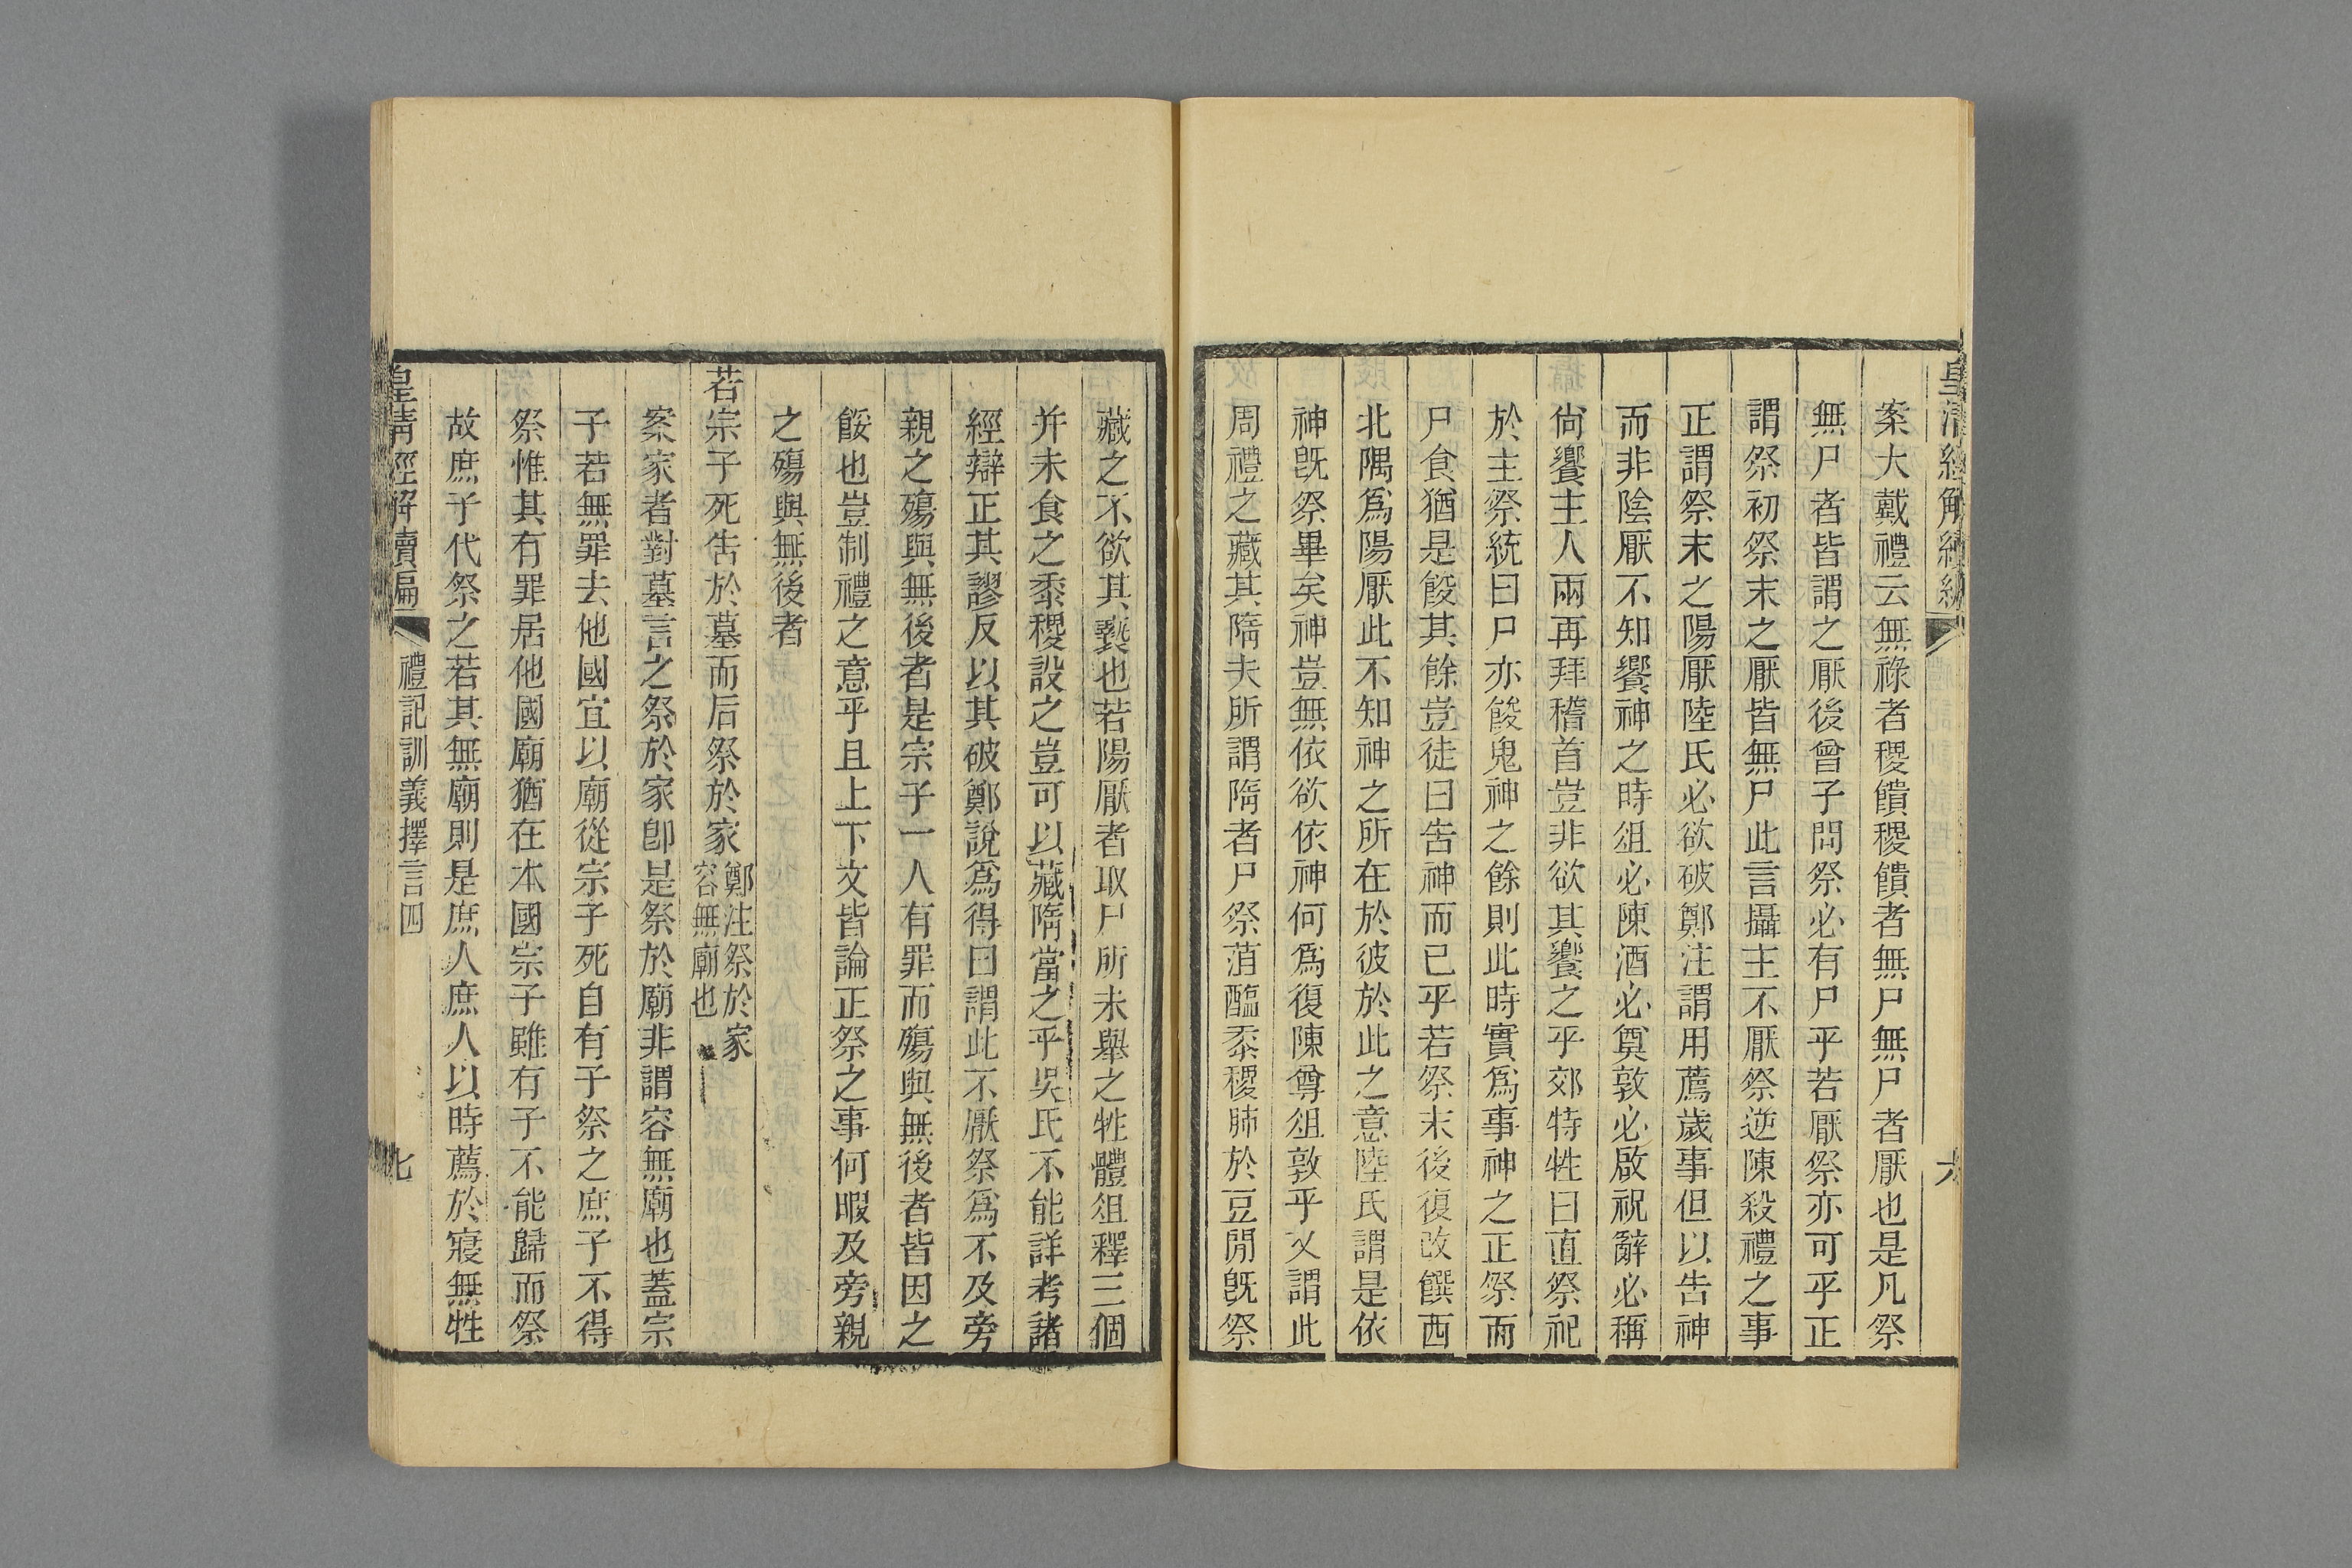 皇清經解續編
六
案大戴禮云無祿者稷饋稷饋者無尸無尸者厭也是凡祭
無尸者皆謂之厭後曾子問祭必有尸乎若厭祭亦可乎正
謂祭初祭末之厭皆無尸此言攝主不厭祭逆陳殺禮之事
正謂祭末之陽厭陸氏必欲破鄭注謂用薦歲事但以告神
而非陰厭不知饗神之時俎必陳酒必奠敦必啟祝辭必稱
尙饗主人兩再拜稽首豈非欲其饗之乎郊特牲曰直祭祀
於主祭統曰尸亦餕鬼神之餘則此時實爲事神之正祭而
尸食猶是餕其餘豈徒曰告神而已乎若祭末後復改饌西
北隅爲陽厭此不知神之所在於彼於此之意陸氏謂是依
神旣祭畢矣神豈無依欲依神何爲復陳尊俎敦乎又謂此
周禮之藏其隋夫所謂隋者尸祭菹醢黍稷肺於豆閒旣祭
藏之不欲其褻也若陽厭者取尸所未舉之牲體俎釋三個
并未食之黍稷設之豈可以藏隋當之乎吳氏不能詳考諸
經辯正其謬反以其破鄭說爲得曰謂此不厭祭爲不及旁
親之殤與無後者是宗子一人有罪而殤與無後者皆因之
餒也豈制禮之意乎且上下文皆論正祭之事何暇及旁親
之殤與無後者
若宗子死告於墓而后祭於家鄭注祭於家
容無廟也
案家者對墓言之祭於家卽是祭於廟非謂容無廟也蓋宗
子若無罪去他國宜以廟從宗子死自有子祭之庶子不得
祭惟其有罪居他國廟猶在本國宗子雖有子不能歸而祭
故庶子代祭之若其無廟則是庶人庶人以時薦於寢無牲
皇清經解續編
禮記訓義擇言四
七